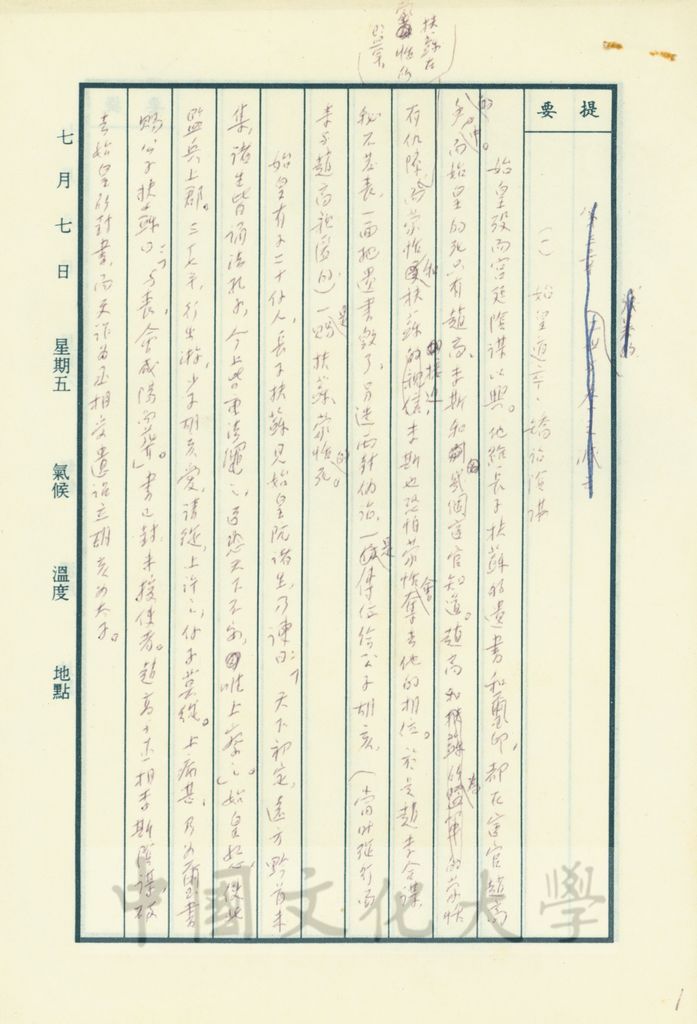 扶蘇在
蒙恬的
提要
(一) 始皇道卒，矯詔陰謀
始皇歿而宮廷陰謀以興。他給長子扶蘇的遺書和璽印，都在宦官趙高
的手中。而始皇的死只有趙高、李斯和幾個宦官知道。趙高和蒙恬
有仇隙，蒙恬和扶蘇的親信，李斯也恐怕蒙恬會奪去他的相位。於是趙李合謀
秘不發喪，一面把遺書毀了，另造兩封偽詔，一是傳位給公子胡亥，（當時從行而
李斯趙高祝匿的）一是賜扶蘇、蒙恬死。
始皇有子二十餘人，長子扶蘇見始皇阬諸生，乃諫曰：「天下初定，遠方黔首未
集，諸生皆誦法孔子，今上皆重法繩之，臣恐天下不安，唯上察之。」始皇怒，使北
監兵上郡。三十七年，行出游，少子胡亥愛，請從，上許之，餘子莫從。上病甚，乃為璽書
賜公子扶蘇曰：「與喪，會咸陽而葬」。書已封，未授使者。趙高乃與丞相李斯陰謀，破
去始皇的封書，而更詐為丞相受遺詔立胡亥為太子。
七月七日 星期五 氣候 溫度 地點
中國文化大學
1